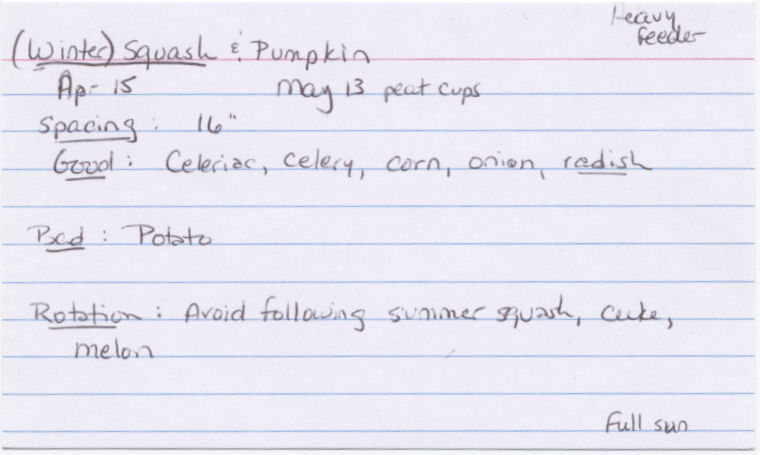 Heavy
feeder
(Winter) Squash & Pumpkin
Apr 15 May 13 peat cups
Spacing: 16"
Good: Celeriac, celery, corn, onion, radish
Bad: Potato
Rotation: Avoid following summer squash, cuke,
melon
Full sun